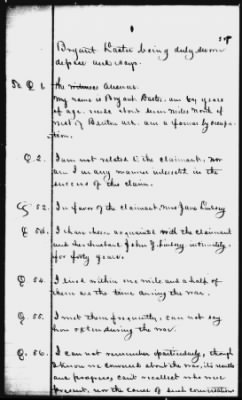 Bryant Easter being duly sworn
depose and says.
To Q 1. the witness answers.
My name is Bryant Easter, am 64 years
of age. reside about seven miles North of
west of Benton Ark. am a farmer by occupa-
tion.
Q. 2. I am not related to the claimant, nor
am I in any manner interested in the
success of this claim.
Q 52. In favor of the claimant, Mrs Jane Lindsey
Q 53. I have been acquainted with the claimant
and her husband John J. Lindsey intimately
for forty years.
Q. 54. I lived within one mile and a half of
them all the time during the war.
Q. 55. I met them frequently, can not say
how often during the war.
Q. 56. I can not remember particularly, though
I know we conversed about the war, its results
and progress, can't recollect who were
present, nor the course of such conversations